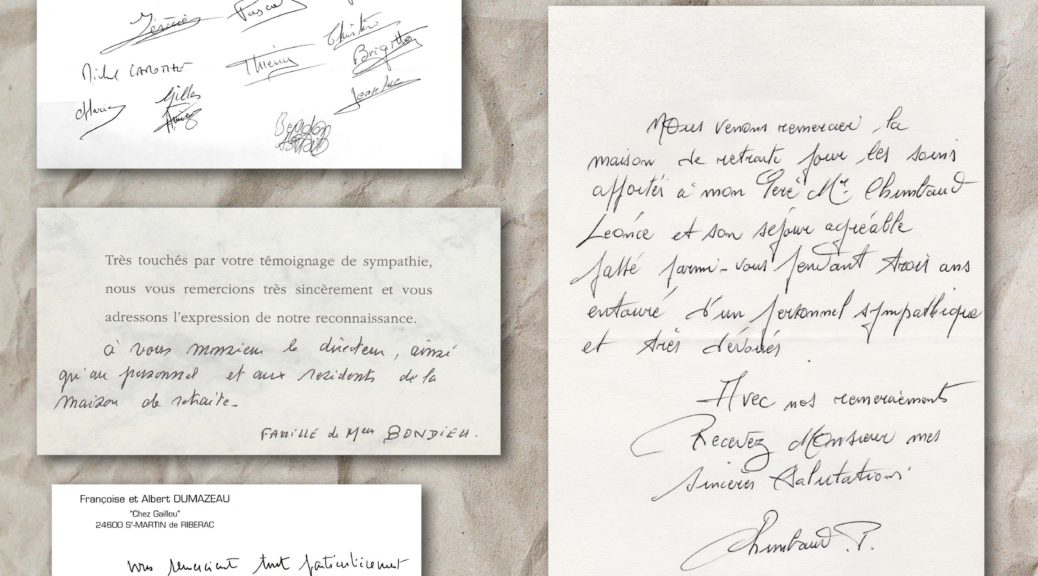 Jérémie Pascal
Christine
Michel Thierry Brigitte
Gilles Jean Luc
Très touchés par votre témoignage de sympathie,
nous vous remercions très sincèrement et vous
adressons l'expression de notre reconnaissance.
à vous monsieur le directeur, ainsi
qu'au personnel et aux residents de la
maison de retraite_
FAMILLE de Mme BONDIEU.
Françoise et Albert DUMAZEAU
"Chez Gaillou"
24600 St-MARTIN de RIBERAC
vous remercient tout particulièrement
Nous venons remercier, la
maison de retraite pour les soins
apportés à mon Pèré Mr. Chimbaud
Leônce et son séjour agréable
passé parmi-vous pendant trois ans
entouré d'un personnel sympathique
et très dévoués.
Avec nos remerciements
Recevez Monsieur mes
sincères salutations
Chimbaud. P.